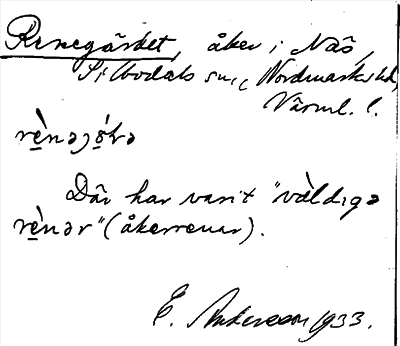 Renegärdet, åker i Näs,
Silbodals sn., Nordmarks hd,
Värml. l.
rè̱nəjo̱rə
Där har varit "vàldıgə
rè̱nər" (åkerrenar).
E. Andersson 1933.